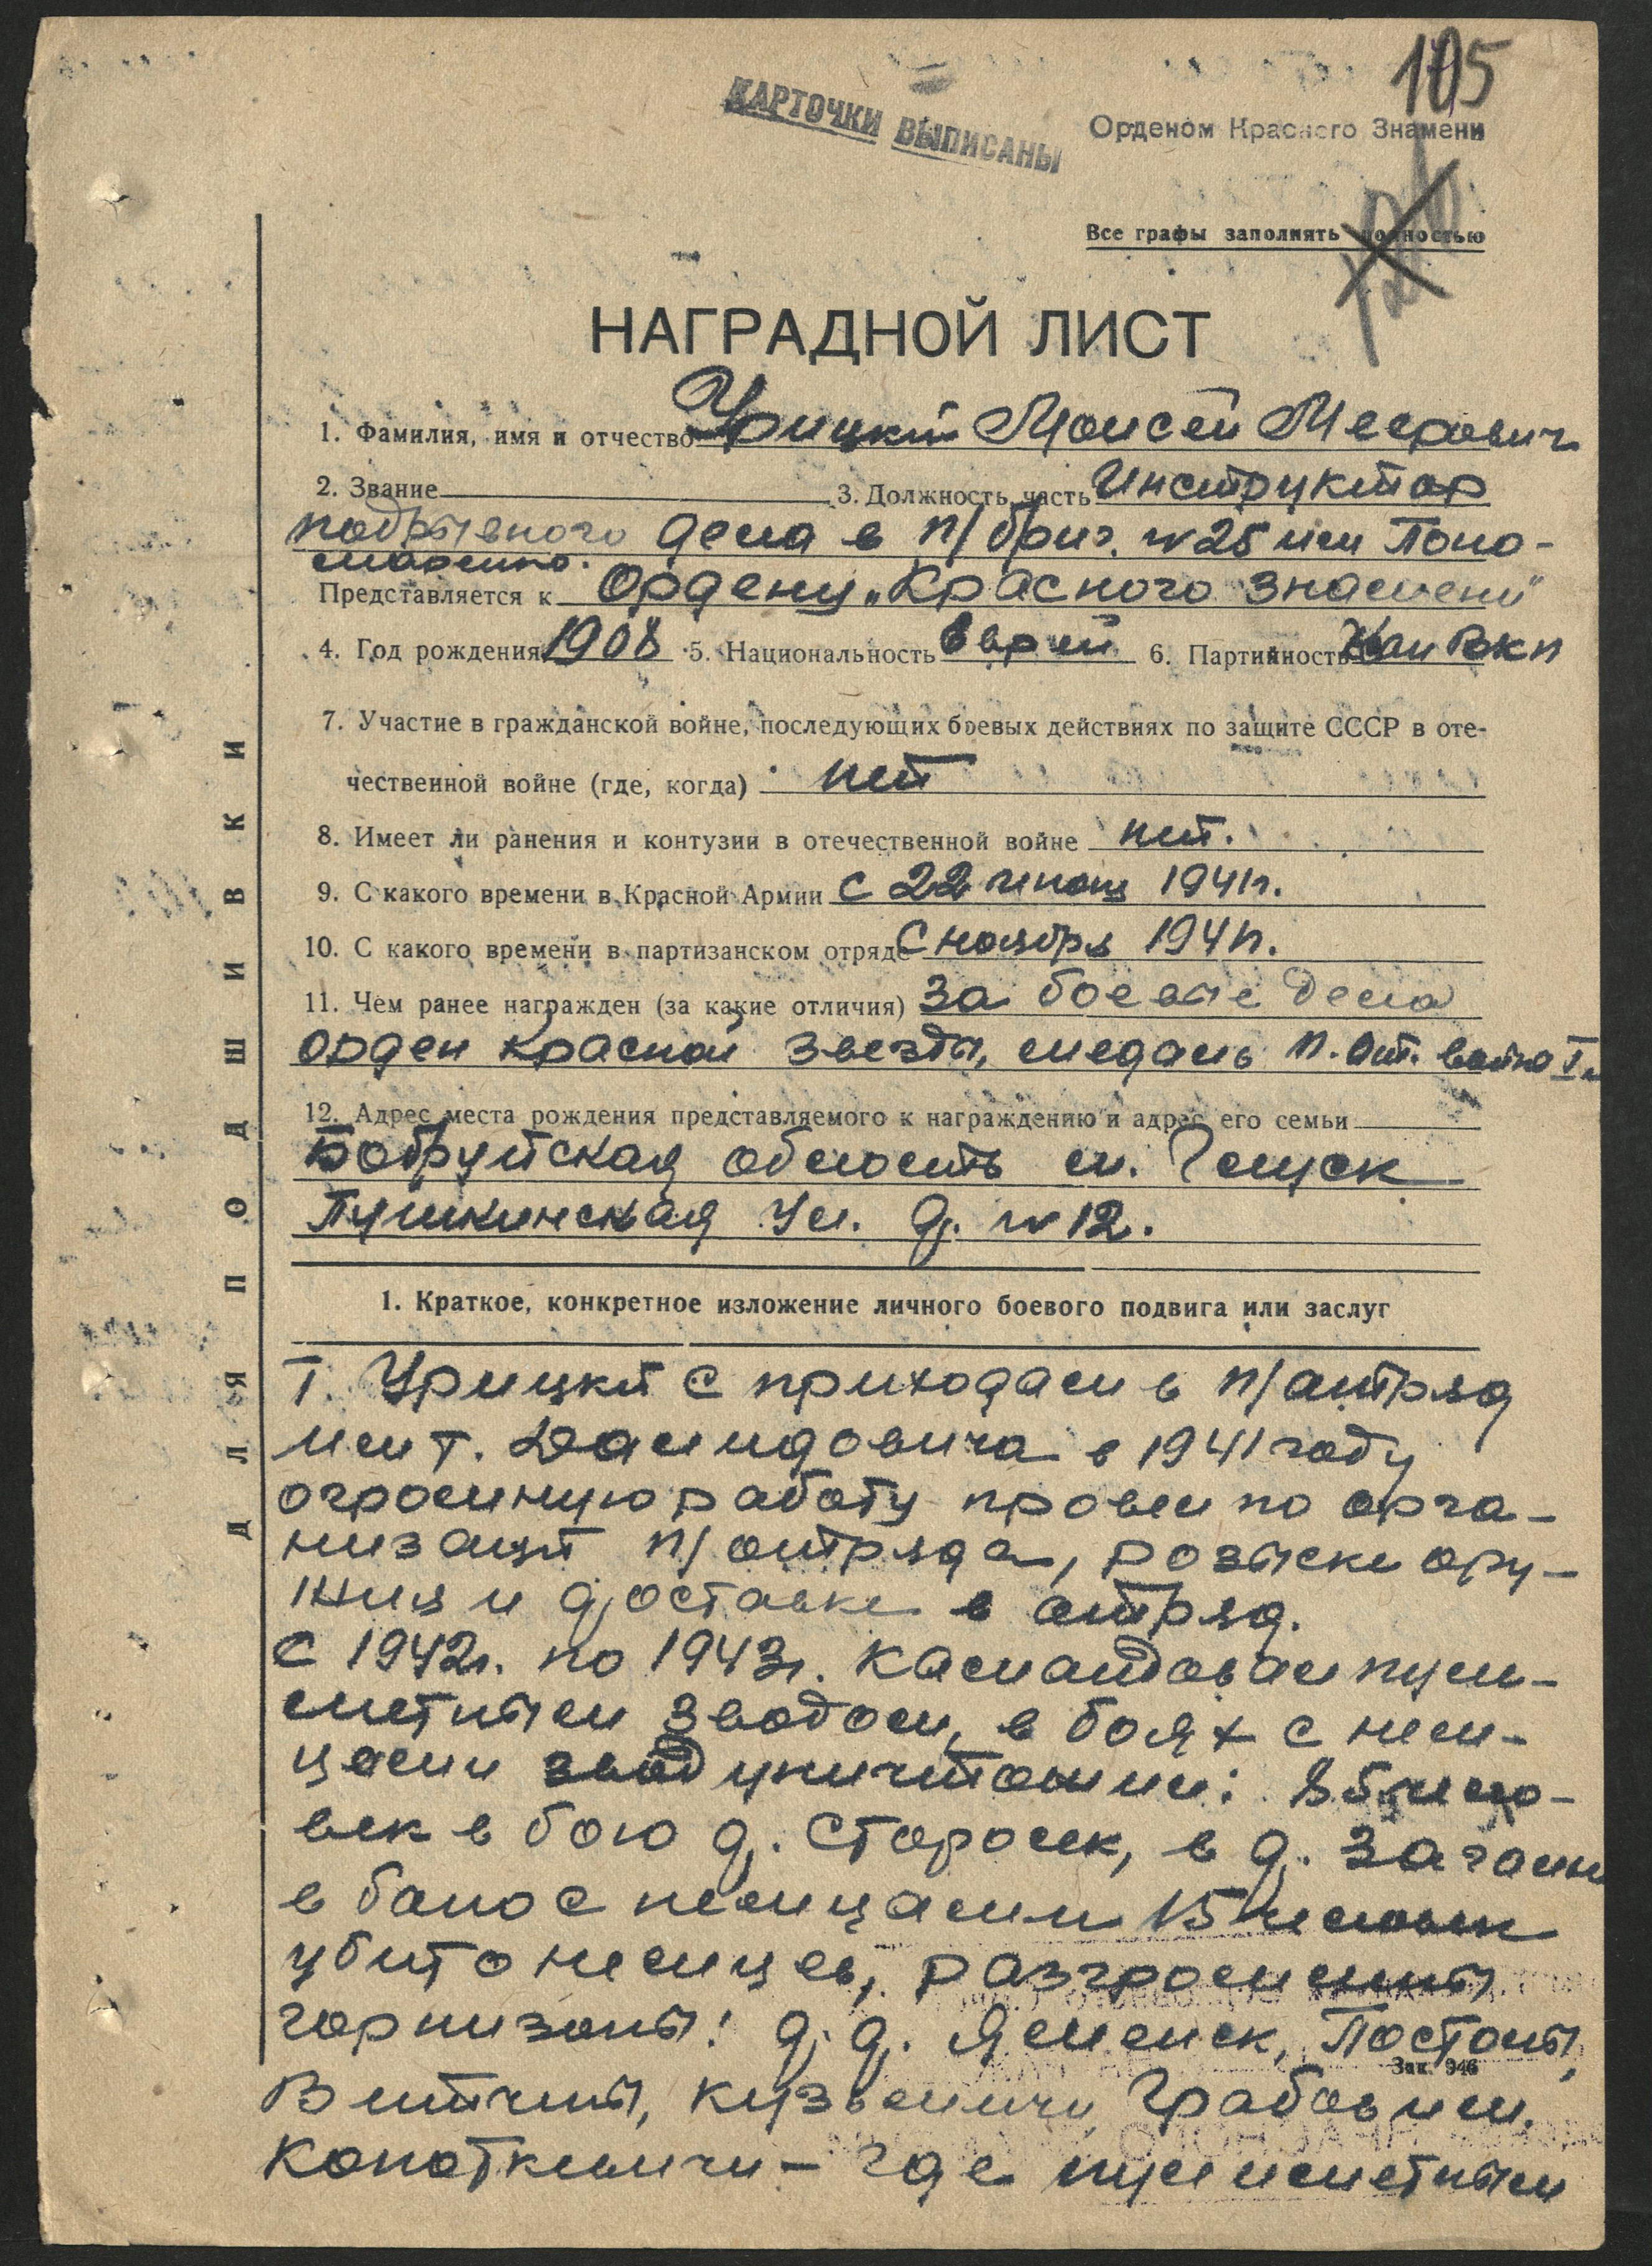 105
КАРТОЧКИ ВЫПИСАНЫ
Орденом Красного Знамени
Все графы заполнять полностью
НАГРАДНОЙ ЛИСТ
1. Фамилия, имя и отчество Урицкий Моисей Меерович
2. Звание 3. Должность, часть Инструктор
подрывного дела в п/бриг. №25 им Поно-
маренко.
Представляется к Ордену „Красного знамени"
4. Год рождения 1908 5. Национальность Еврей 6. Партийность Кан ВКП
7. Участие в гражданской войне, последующих боевых действиях по защите СССР в оте-
чественной войне (где, когда) нет
8. Имеет ли ранения и контузии в отечественной войне нет.
9. С какого времени в Красной Армии С 22 июня 1941г.
10. С какого времени в партизанском отряде С ноября 1941г.
11. Чем ранее награжден (за какие отличия) За боевые дела
орден красной звезды, медаль п. от. войны I
12. Адрес места рождения представляемого к награждению и адрес его семьи
Бобруйская область м. Глуск
Пушкинская ул. д. №12.
1. Краткое, конкретное изложение личного боевого подвига или заслуг
Т. Урицкий с приходом в п/отряд
им т. Далидовича в 1941 году
огромную работу провел по орга-
низации п/отряда, розыске ору-
жия и доставке в отряд.
С 1942г. по 1943г. командовал пуле-
метным зводом, в боях с нем-
цами звод уничтожил: 85 чело-
век в бою д. Сторосек, в д.
в бою с немцами 15 человек
убито немцев, разгромлены
горнизоны: д.д. Яменск, Постолы,
Витчин, Кузьмичи, Грабов им.
Копоткевичи – где пулеметным
Зак. 946
ДЛЯ ПОДШИВКИ